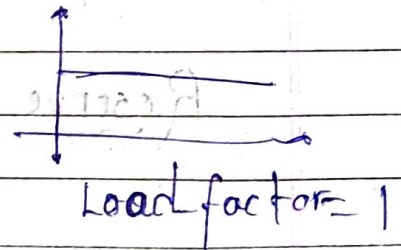 Load factor = 1